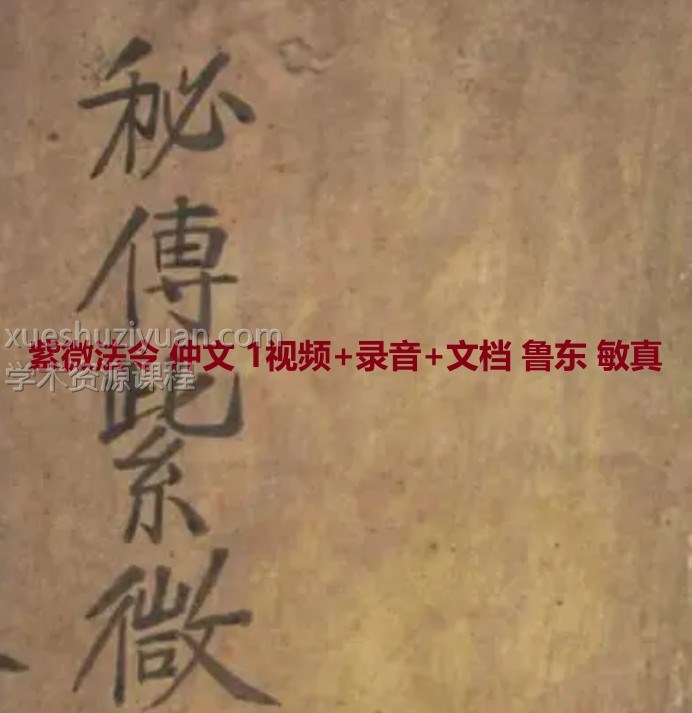 秘傳紫微
xueshuziyuan.com
紫微法令 仲文 1视频+录音+文档 鲁东 敏真
学术资源课程